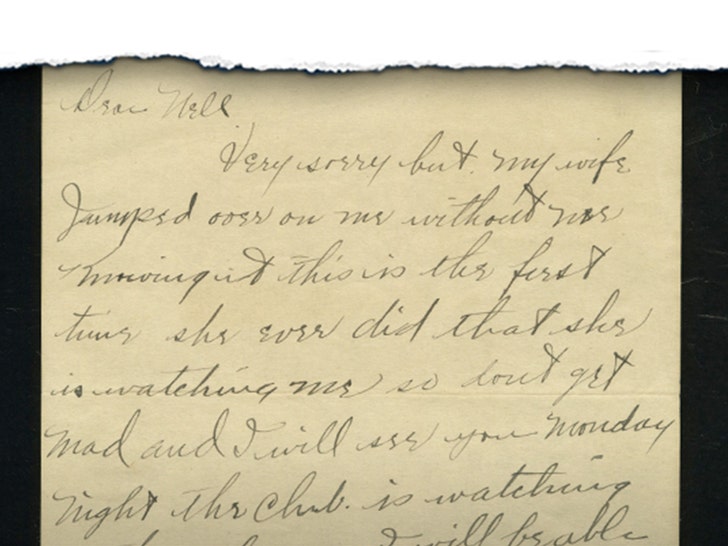 Dear Nell
Very sorry but my wife
Jumped over on me without me
Knowing it this is the first
time she ever did that she
is watching me so dont get
mad and I will see you Monday
night the Club. is watching
I will be able